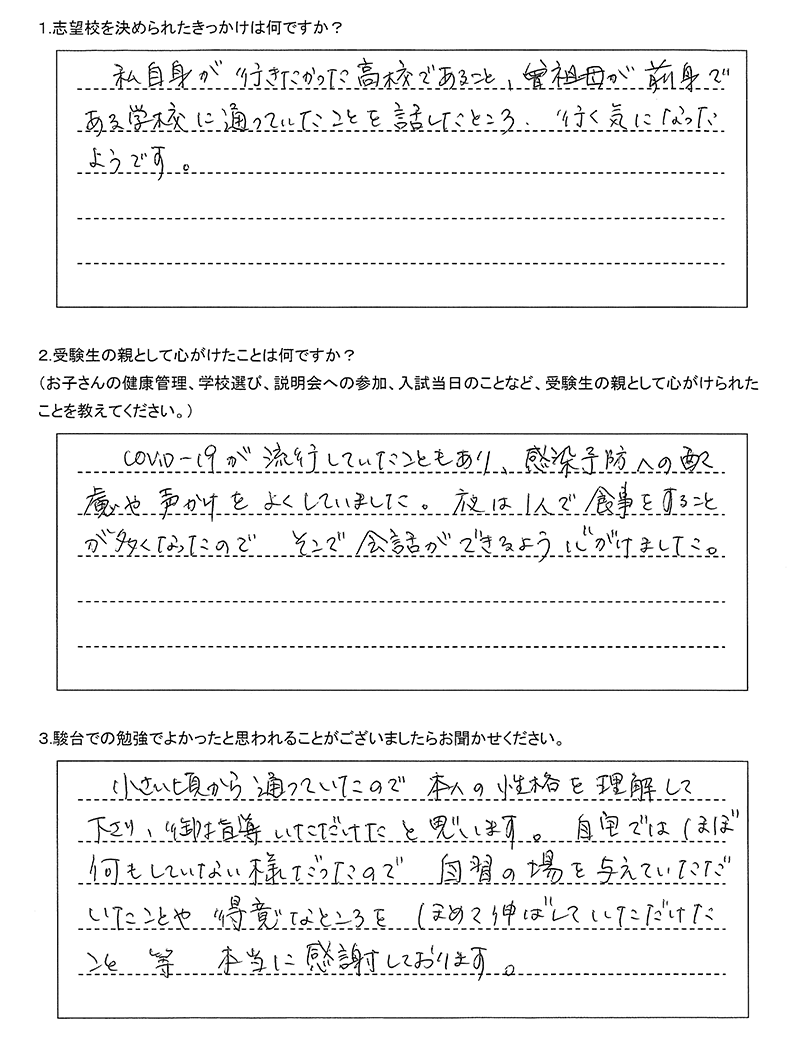 1.志望校を決められたきっかけは何ですか？
私自身が行きたかった高校であること、曾祖母が前身で
ある学校に通っていたことを話したところ、行く気になった
ようです。
2.受験生の親として心がけたことは何ですか？
（お子さんの健康管理、学校選び、説明会への参加、入試当日のことなど、受験生の親として心がけられた
ことを教えてください。）
COVID-19が流行していたこともあり、感染予防への配
慮や声かけをよくしていました。夜は1人で食事をすること
が多くなったので そこで会話ができるよう心がけました。
3.駿台での勉強でよかったと思われることがございましたらお聞かせください。
小さい頃から通っていたので 本人の性格を理解して
下さり、御指導いただけたと思います。自宅ではほぼ
何もしていない様だったので 自習の場を与えていただ
いたことや得意なところを ほめて伸ばしていただけた
こと 等 本当に感謝しております。